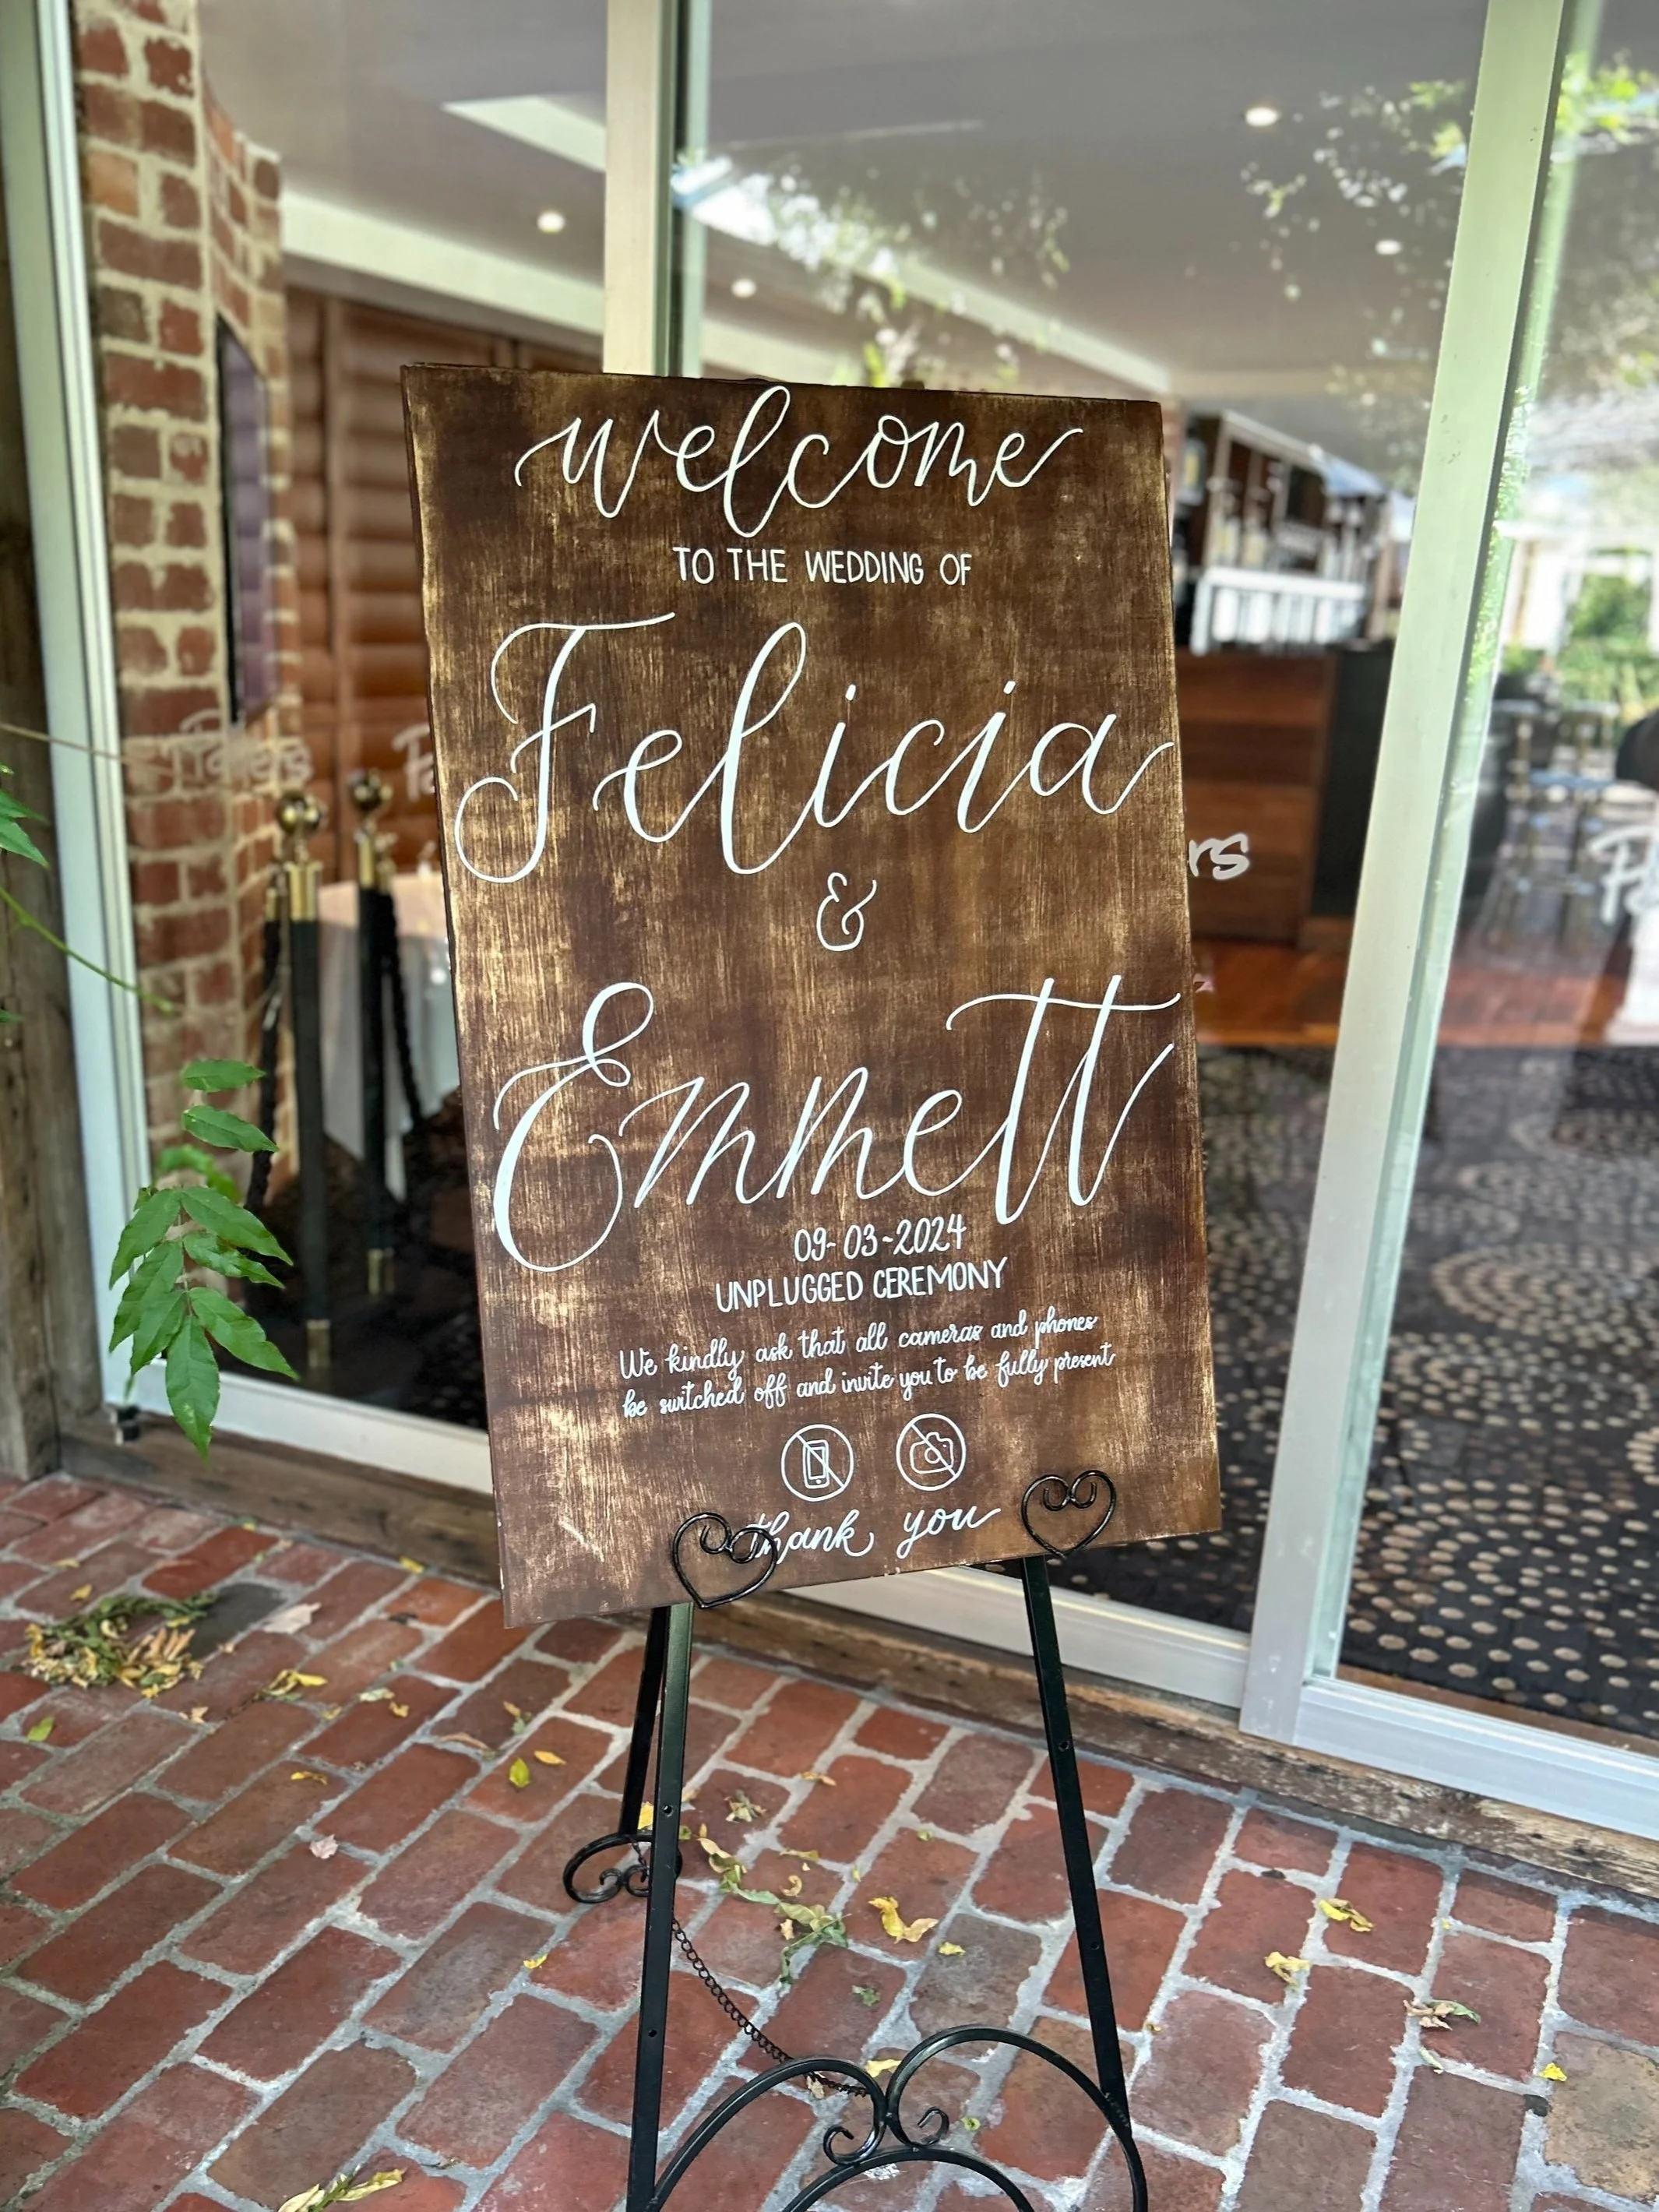 welcome
TO THE WEDDING OF
Felicia
&
Emmett
09-03-2024
UNPLUGGED CEREMONY
We kindly ask that all cameras and phones
be switched off and invite you to be fully present
thank you